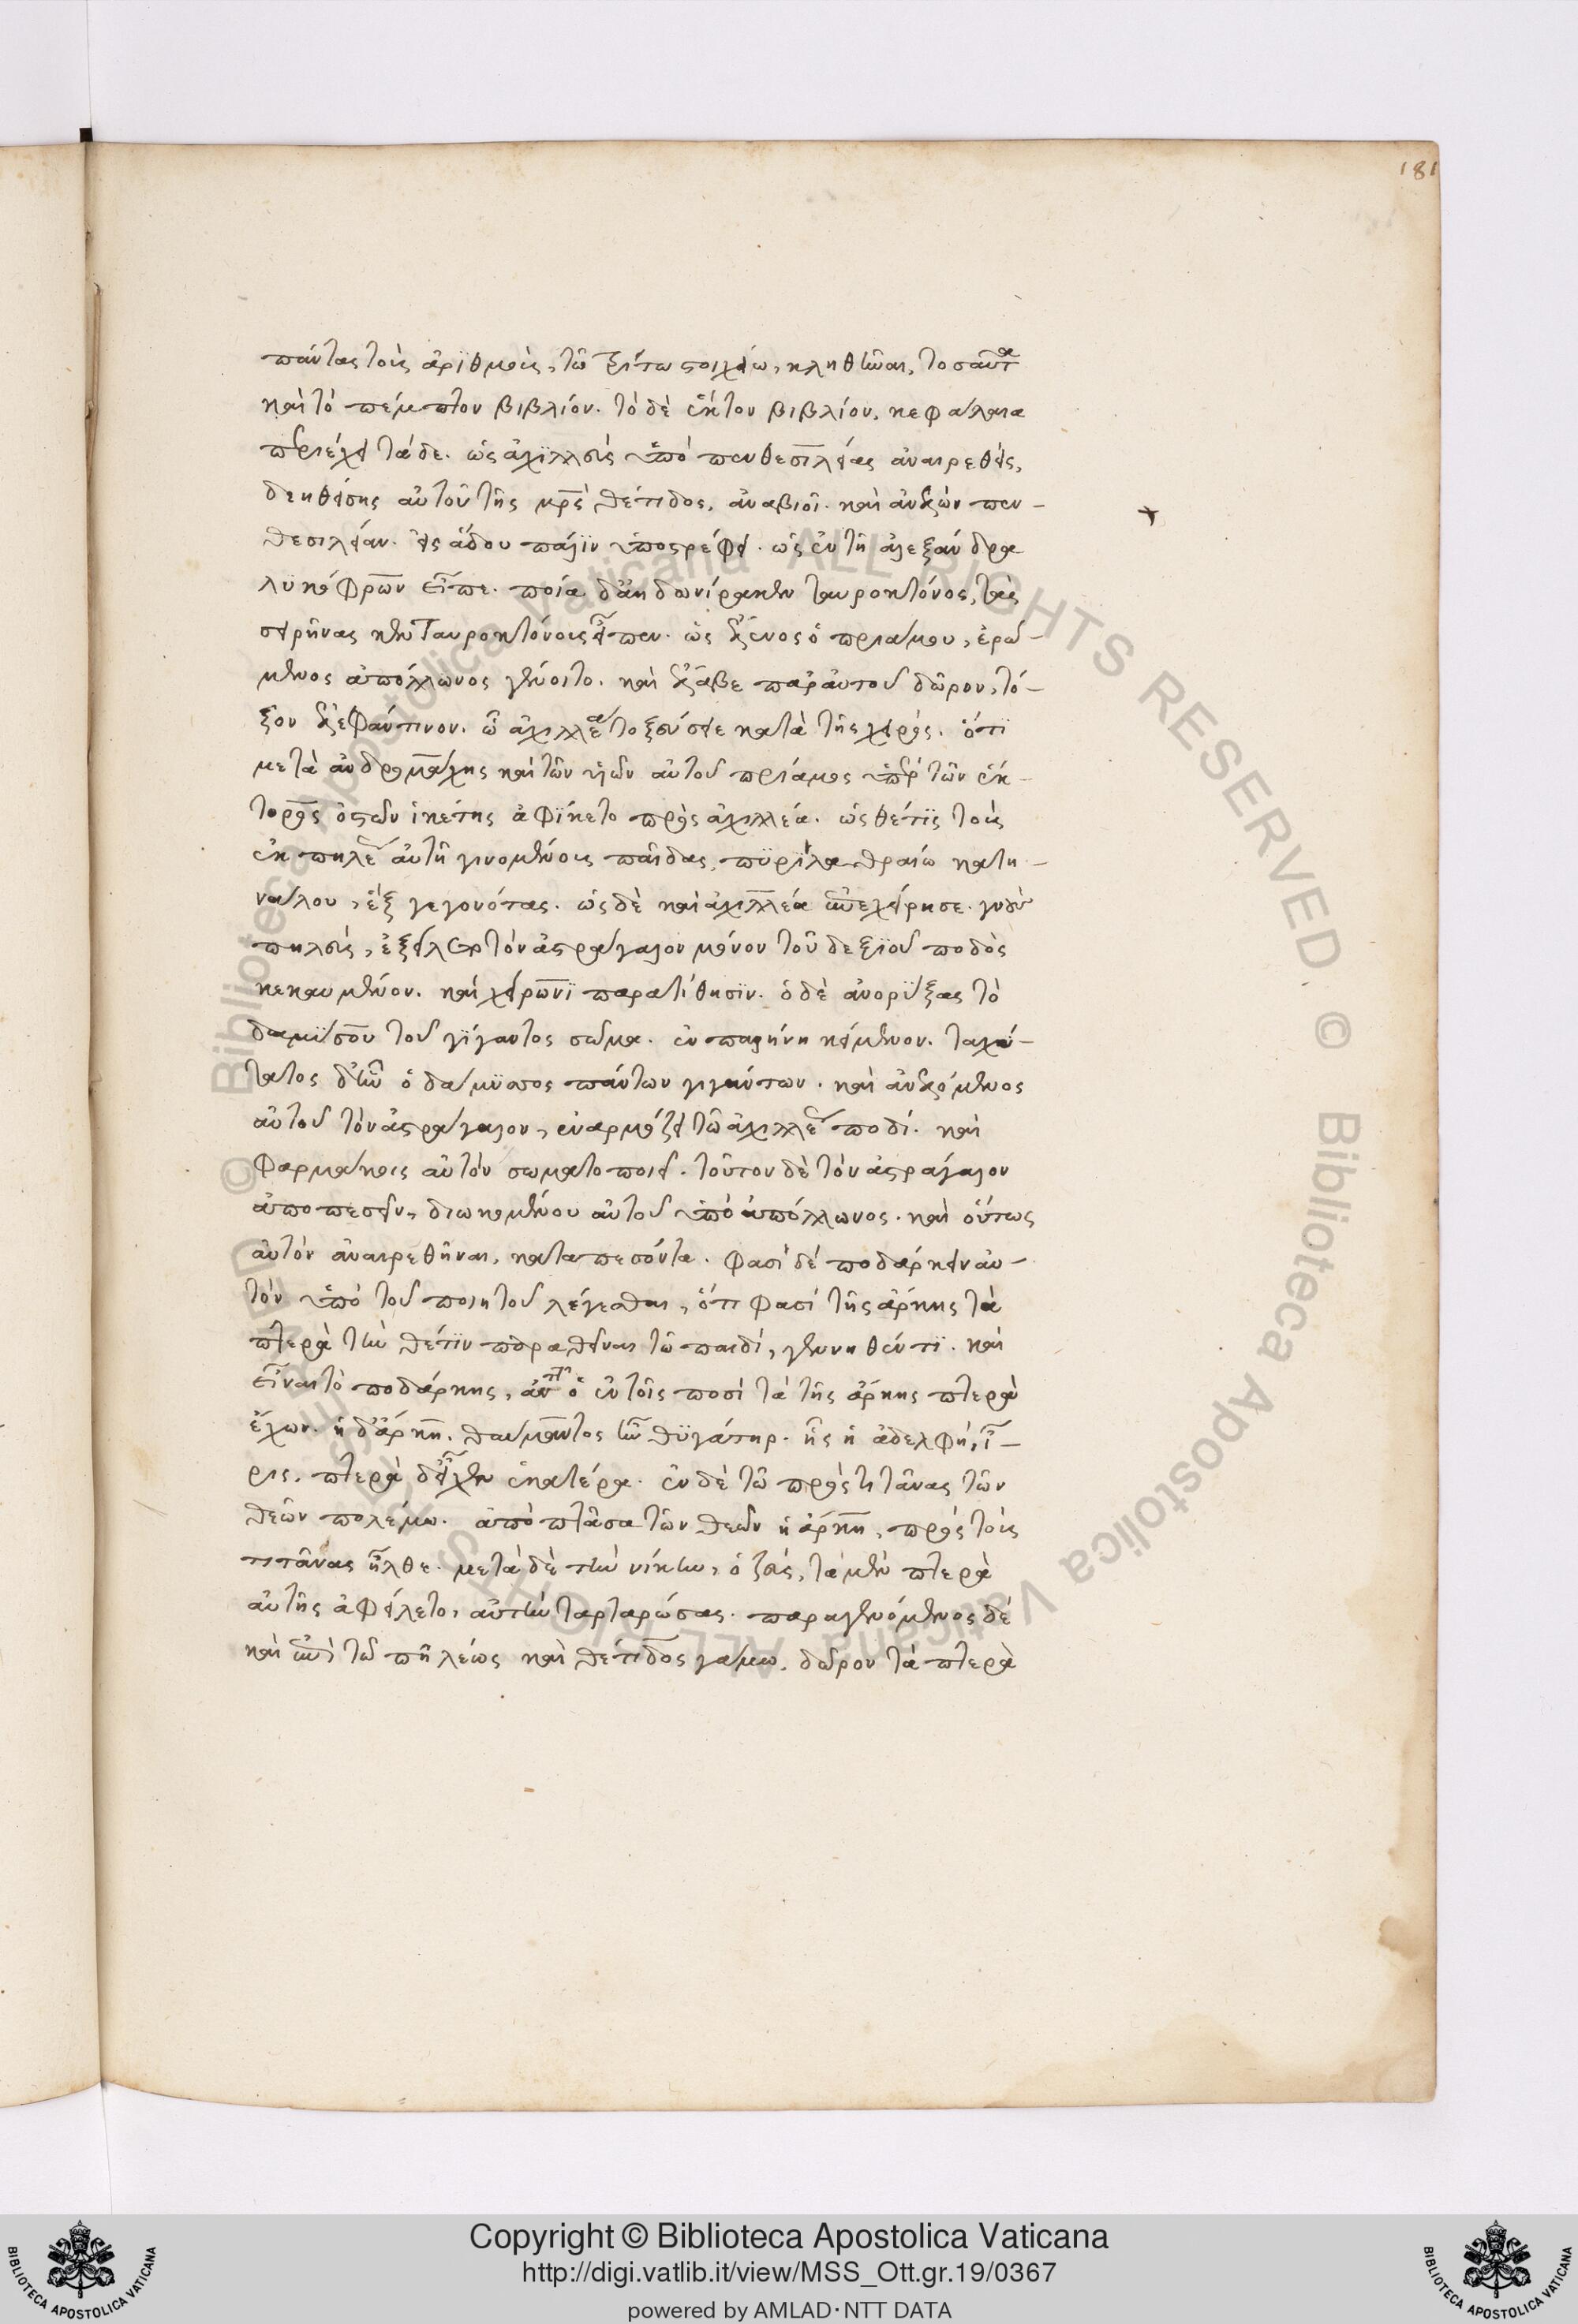 181
πάντας τοὺς ἀριθμοὺς, τῶ τρίτω στοιχείω, κληθῆναι, τοσαῦτα
καὶ τὸ πέμπτον βιβλίον. τὸ δὲ ἕκτον βιβλίον, κεφάλαια
περιέχει τάδε. ὡς ἀχιλλεὺς ὑπὸ πενθεσιλείας ἀναιρεθεὶς,
δεηθείσης αὐτοῦ τῆς μρ̅ς θέτιδος, ἀναβιοῖ. καὶ ἀνελὼν πεν-
θεσιλείαν. εἰς ἅδου πάλιν ὑποστρέφει. ὡς ἐν τῆ ἀλεξάνδρα
λυκόφρων εἶπε. ποία δ' ἀηδονὶς κτην ταυροκτόνος, τὰς
σειρῆνας κεν ταυροκτόνους εἶπεν. ὡς ἕλενος ὁ πριάμου, ἐρώ-
μενος ἀπόλλωνος γένοιτο. καὶ ἔλαβε παρ' αὐτοῦ δῶρον, τό-
ξον ἐλεφάντινον. ὧ ἀχιλλέα τοξεύσειε κατὰ τῆς χειρός. ὅτι
μετὰ ἀνδρομάχης καὶ τῶν υἱῶν αὐτοῦ πρίαμος ὑπὲρ τῶν ἕκ-
τορος ὀστῶν ἱκέτης ἀφίκετο πρὸς ἀχιλλέα. ὡς θέτις τοὺς
ἐκ πηλέως αὐτῆ γινομένους παῖδας, πυρὶ λαθραίω κατη-
νάλου, ἓξ γεγονότας. ὡς δὲ καὶ ἀχιλλέα ἐπεχείρησε. γνοὺς
πηλεὺς, ἐξείλετο τὸν ἀστράγαλον μόνον τοῦ δεξιοῦ ποδὸς
κεκαυμένον. καὶ χείρωνι παρατίθησιν. ὁ δὲ ἀνορύξας τὸ
δαμύσου τοῦ γίγαντος σῶμα. ἐν παλήνη κείμενον. ταχύ-
τατος δ' ἦν ὁ δάμυσος πάντων γιγάντων. καὶ ἀνελόμενος
αὐτοῦ τὸν ἀστράγαλον, ἐναρμόζει τῶ ἀχιλλέως ποδί. καὶ
φαρμάκοις αὐτὸν σωματοποιεῖ. τοῦτον δὲ τὸν ἀστράγαλον
ἀποπεσεῖν, διωκομένου αὐτοῦ ὑπὸ ἀπόλλωνος. καὶ οὕτως
αὐτὸν ἀναιρεθῆναι, καταπεσόντα. φασὶ δὲ ποδάρκειν αὐ-
τὸν ὑπὸ τοῦ ποιητοῦ λέγεσθαι, ὅτι φασὶ τῆς ἄρκης τὰ
πτερὰ τὴν θέτιν περιθεῖναι τῶ παιδὶ, γεννηθέντι. καὶ
εἶναι τὸ ποδάρκης, ἀντὶ τοῦ ὁ ἐν τοῖς ποσὶ τὰ τῆς ἄρκης πτερὰ
ἔχων. ἡ δ' ἄρκη, θαύμαντος ἦν θυγάτηρ. ἧς ἡ ἀδελφὴ, ἶ-
ρις. πτερὰ δ' εἶχεν ἑκατέρα. ἐν δὲ τῶ πρὸς τιτᾶνας τῶν
θεῶν πολέμω. ἀποπτᾶσα τῶν θεῶν ἡ ἄρκη, πρὸς τοὺς
τιτᾶνας ἦλθε. μετὰ δὲ τὴν νίκην, ὁ ζεὺς, τὰ μὲν πτερὰ
αὐτῆς ἀφείλετο, αὐτὴν ταρταρώσας. παραγενόμενος δὲ
καὶ ἐπὶ τῶ πηλέως καὶ θέτιδος γάμω, δῶρον τὰ πτερὰ
Copyright © Biblioteca Apostolica Vaticana
http://digi.vatlib.it/view/MSS_Ott.gr.19/0367
powered by AMLAD·NTT DATA